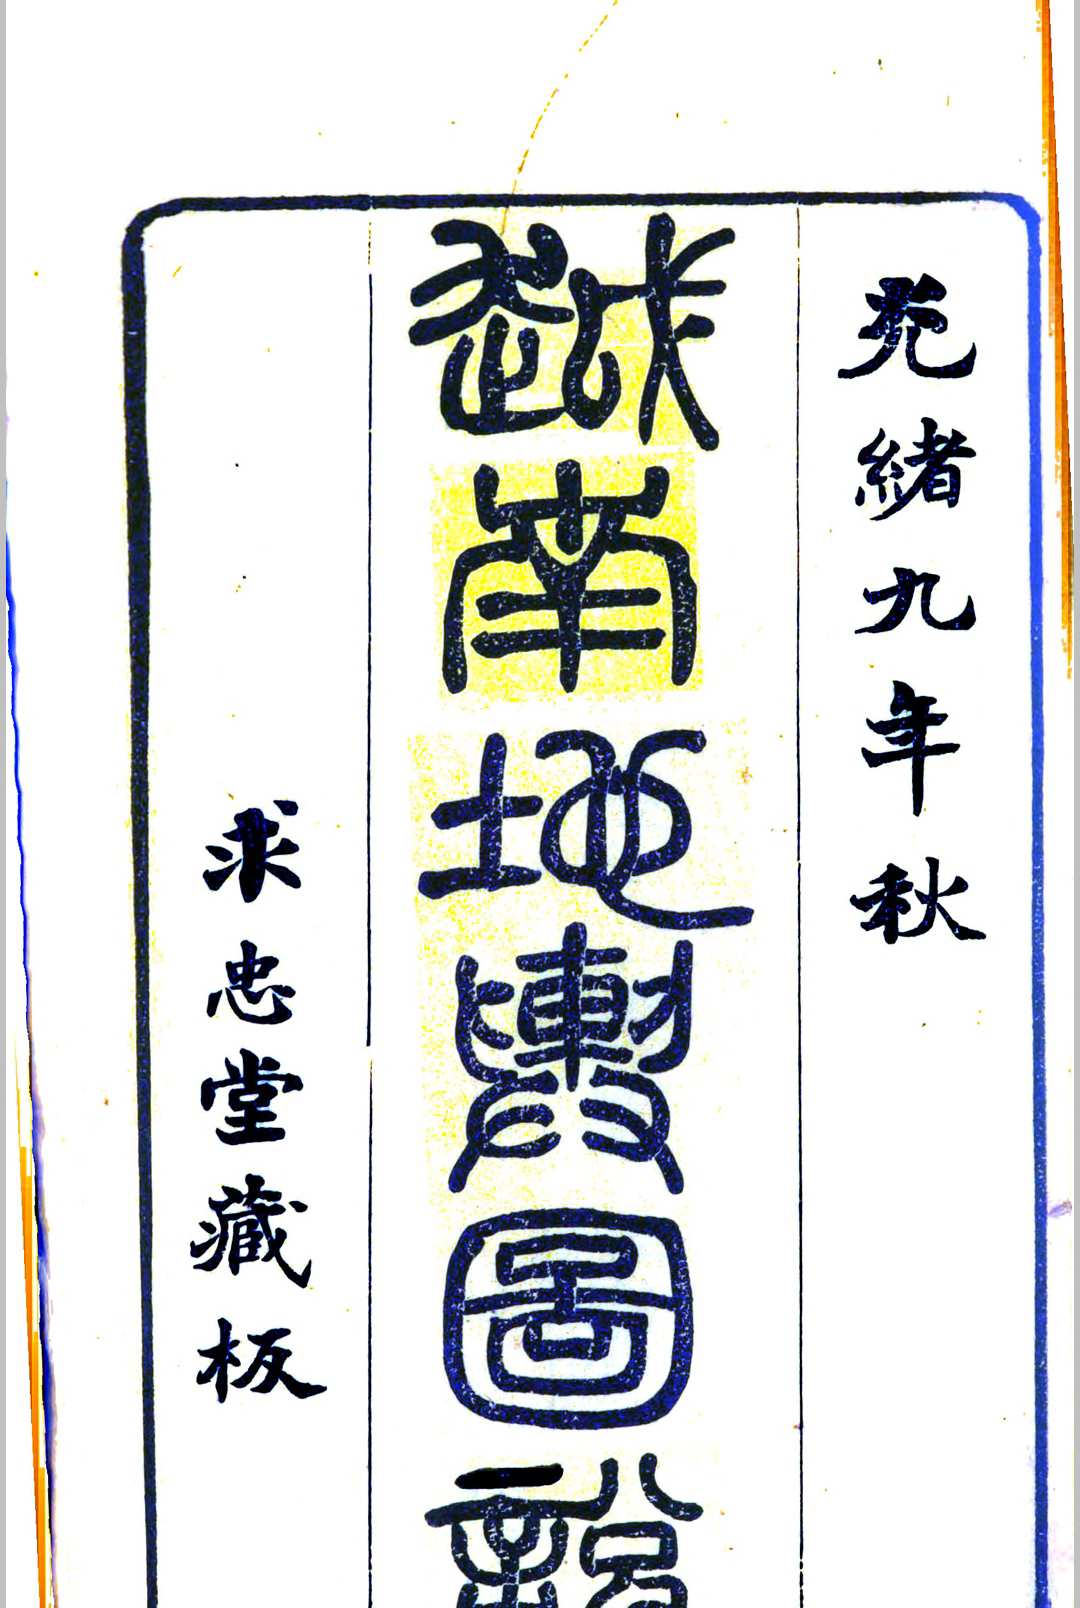 光緒九年秋
越南地輿圖說
求忠堂藏板